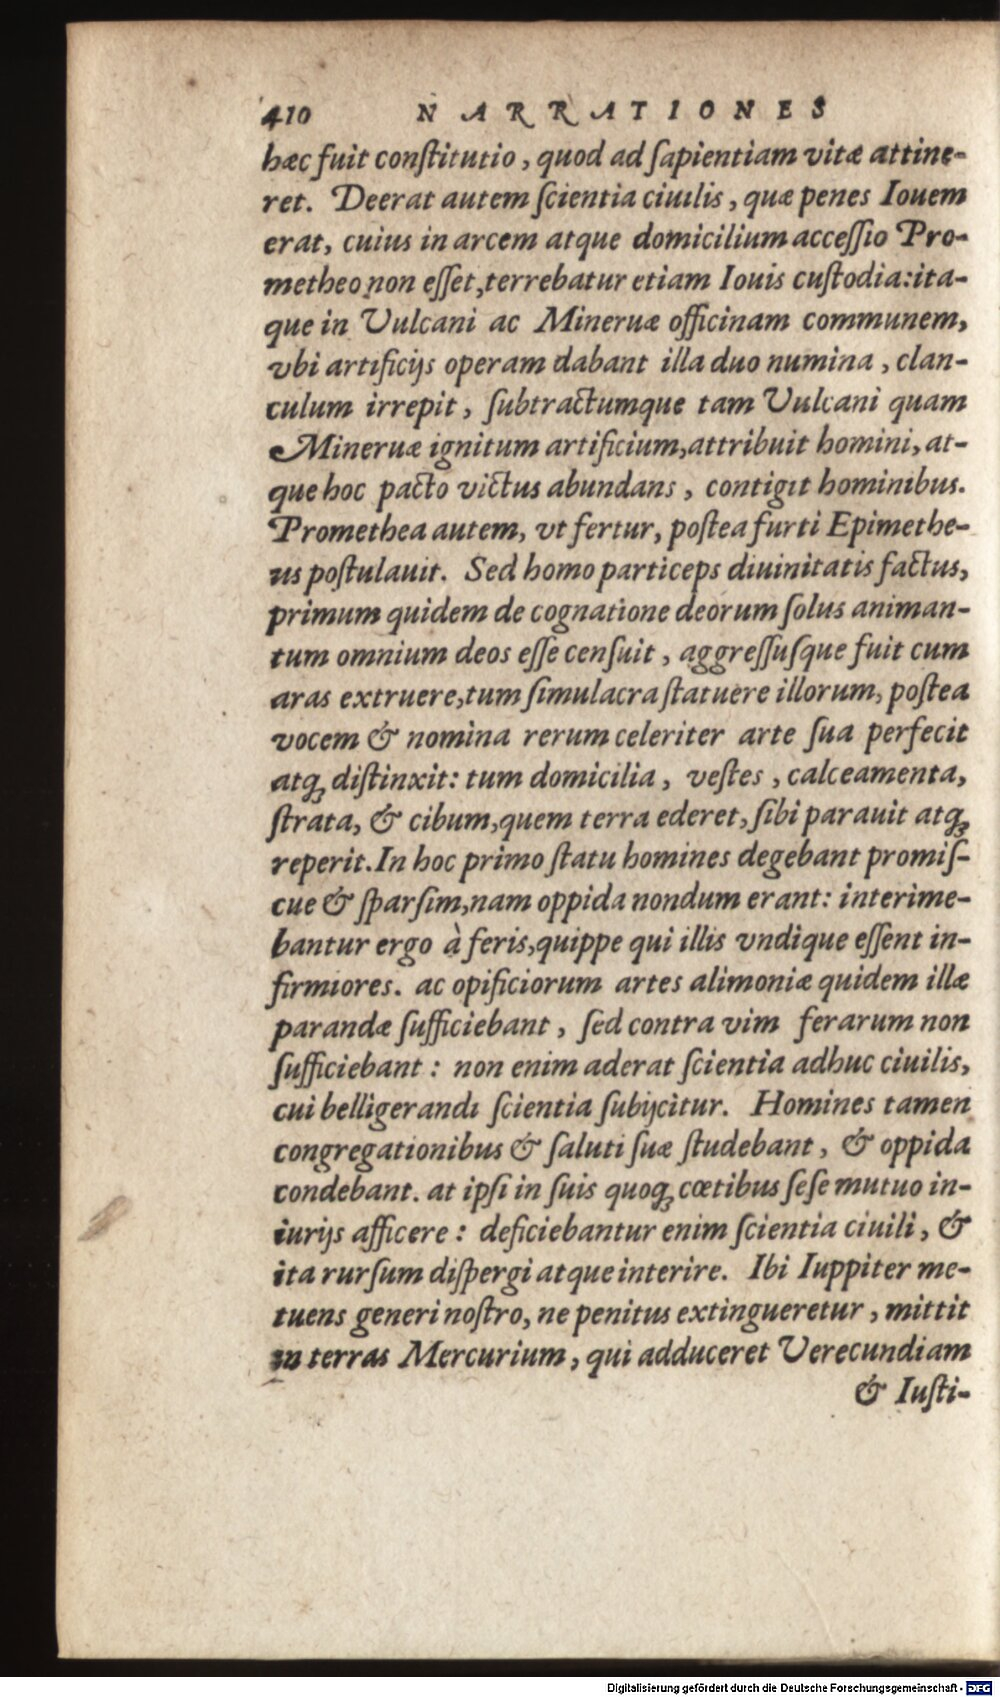 410 NARRATIONES
hæc fuit conſtitutio, quod ad ſapientiam vitæ attine-
ret. Deerat autem ſcientia ciuilis, quæ penes Iouem
erat, cuius in arcem atque domicilium acceſſio Pro-
metheo non eſſet, terrebatur etiam Iouis cuſtodia: ita-
que in Vulcani ac Mineruæ officinam communem,
vbi artificijs operam dabant illa duo numina, clan-
culum irrepit, ſubtractumque tam Vulcani quam
Mineruæ ignitum artificium, attribuit homini, at-
que hoc pacto victus abundans, contigit hominibus.
Promethea autem, vt fertur, poſtea furti Epimethe-
us poſtulauit. Sed homo particeps diuinitatis factus,
primum quidem de cognatione deorum ſolus animan-
tum omnium deos eſſe cenſuit, aggreſſuſque fuit cum
aras extruere, tum ſimulacra ſtatuere illorum, poſtea
vocem & nomina rerum celeriter arte ſua perfecit
atq; diſtinxit: tum domicilia, veſtes, calceamenta,
ſtrata, & cibum, quem terra ederet, ſibi parauit atq;
reperit. In hoc primo ſtatu homines degebant promiſ-
cue & ſparſim, nam oppida nondum erant: interime-
bantur ergo à feris, quippe qui illis vndique eſſent in-
firmiores. ac opificiorum artes alimoniæ quidem illæ
parandæ ſufficiebant, ſed contra vim ferarum non
ſufficiebant: non enim aderat ſcientia adhuc ciuilis,
cui belligerandi ſcientia ſubijcitur. Homines tamen
congregationibus & ſaluti ſuæ ſtudebant, & oppida
condebant. at ipſi in ſuis quoq; cœtibus ſeſe mutuo in-
iurijs afficere: deficiebantur enim ſcientia ciuili, &
ita rurſum diſpergi atque interire. Ibi Iuppiter me-
tuens generi noſtro, ne penitus extingueretur, mittit
in terras Mercurium, qui adduceret Verecundiam
& Iuſti-
Digitalisierung gefördert durch die Deutsche Forschungsgemeinschaft - DFG